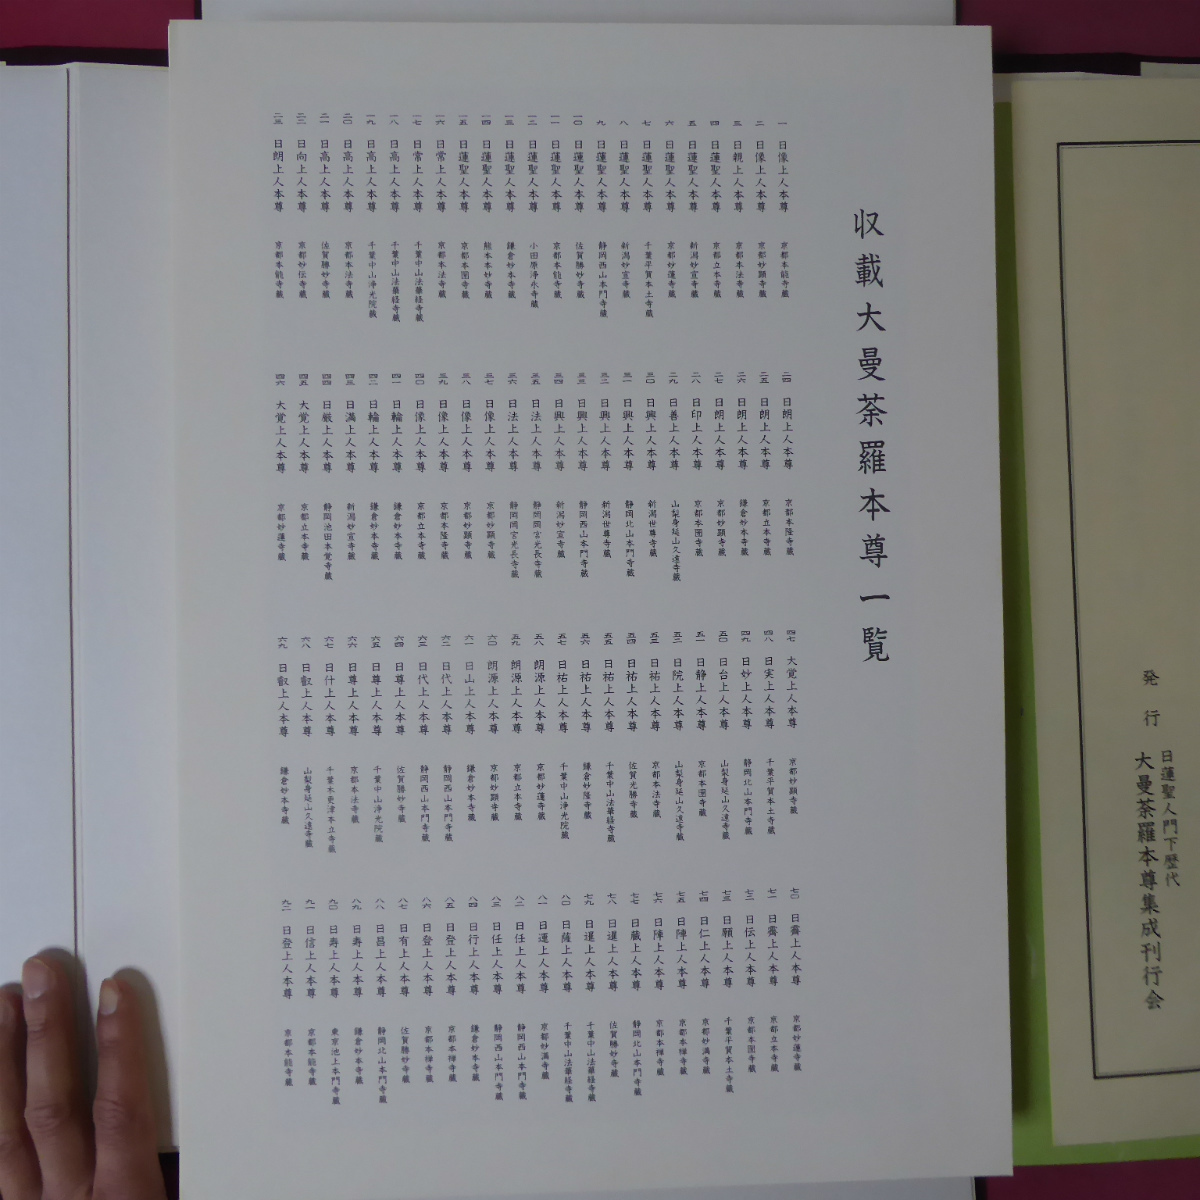 収載大曼荼羅本尊一覧
一 日像上人本尊 京都本能寺蔵
二 日像上人本尊 京都妙顕寺蔵
三 日親上人本尊 京都本法寺蔵
四 日蓮聖人本尊 京都立本寺蔵
五 日蓮聖人本尊 新潟妙宣寺蔵
六 日蓮聖人本尊 京都妙蓮寺蔵
七 日蓮聖人本尊 千葉平賀本土寺蔵
八 日蓮聖人本尊 新潟妙宣寺蔵
九 日蓮聖人本尊 静岡西山本門寺蔵
一〇 日蓮聖人本尊 佐賀勝妙寺蔵
一一 日蓮聖人本尊 京都本能寺蔵
一二 日蓮聖人本尊 小田原浄永寺蔵
一三 日蓮聖人本尊 鎌倉妙本寺蔵
一四 日蓮聖人本尊 熊本本妙寺蔵
一五 日蓮聖人本尊 京都本圀寺蔵
一六 日常上人本尊 京都本法寺蔵
一七 日常上人本尊 千葉中山法華経寺蔵
一八 日高上人本尊 千葉中山法華経寺蔵
一九 日高上人本尊 千葉中山浄光院蔵
二〇 日高上人本尊 京都本法寺蔵
二一 日高上人本尊 佐賀勝妙寺蔵
二二 日向上人本尊 京都妙伝寺蔵
二三 日朗上人本尊 京都本能寺蔵
二四 日朗上人本尊 京都本隆寺蔵
二五 日朗上人本尊 京都立本寺蔵
二六 日朗上人本尊 鎌倉妙本寺蔵
二七 日朗上人本尊 京都妙顕寺蔵
二八 日印上人本尊 京都本圀寺蔵
二九 日善上人本尊 山梨身延山久遠寺蔵
三〇 日興上人本尊 新潟世尊寺蔵
三一 日興上人本尊 静岡北山本門寺蔵
三二 日興上人本尊 新潟世尊寺蔵
三三 日興上人本尊 静岡西山本門寺蔵
三四 日興上人本尊 新潟妙宣寺蔵
三五 日法上人本尊 静岡岡宮光長寺蔵
三六 日法上人本尊 静岡岡宮光長寺蔵
三七 日像上人本尊 京都妙顕寺蔵
三八 日像上人本尊 京都妙顕寺蔵
三九 日像上人本尊 京都本隆寺蔵
四〇 日像上人本尊 京都立本寺蔵
四一 日輪上人本尊 鎌倉妙本寺蔵
四二 日輪上人本尊 鎌倉妙本寺蔵
四三 日満上人本尊 新潟妙宣寺蔵
四四 日厳上人本尊 静岡池田本覚寺蔵
四五 大覚上人本尊 京都立本寺蔵
四六 大覚上人本尊 京都妙蓮寺蔵
四七 大覚上人本尊 京都妙顕寺蔵
四八 日実上人本尊 千葉平賀本土寺蔵
四九 日妙上人本尊 静岡北山本門寺蔵
五〇 日台上人本尊 山梨身延山久遠寺蔵
五一 日静上人本尊 京都本圀寺蔵
五二 日院上人本尊 山梨身延山久遠寺蔵
五三 日祐上人本尊 京都本法寺蔵
五四 日祐上人本尊 佐賀光勝寺蔵
五五 日祐上人本尊 千葉中山法華経寺蔵
五六 日祐上人本尊 鎌倉妙隆寺蔵
五七 日祐上人本尊 千葉中山浄光院蔵
五八 朗源上人本尊 京都妙蓮寺蔵
五九 朗源上人本尊 京都立本寺蔵
六〇 朗源上人本尊 京都妙顕寺蔵
六一 日山上人本尊 鎌倉妙本寺蔵
六二 日代上人本尊 静岡西山本門寺蔵
六三 日代上人本尊 静岡西山本門寺蔵
六四 日尊上人本尊 佐賀勝妙寺蔵
六五 日尊上人本尊 千葉中山浄光院蔵
六六 日尊上人本尊 京都本法寺蔵
六七 日什上人本尊 千葉木更津本立寺蔵
六八 日叡上人本尊 山梨身延山久遠寺蔵
六九 日叡上人本尊 鎌倉妙本寺蔵
七〇 日霽上人本尊 京都妙蓮寺蔵
七一 日霽上人本尊 京都立本寺蔵
七二 日伝上人本尊 京都本圀寺蔵
七三 日願上人本尊 千葉平賀本土寺蔵
七四 日仁上人本尊 京都妙満寺蔵
七五 日陣上人本尊 京都本禅寺蔵
七六 日陣上人本尊 京都本禅寺蔵
七七 日蔵上人本尊 静岡北山本門寺蔵
七八 日暹上人本尊 佐賀勝妙寺蔵
七九 日暹上人本尊 千葉中山法華経寺蔵
八〇 日薩上人本尊 千葉中山法華経寺蔵
八一 日運上人本尊 京都妙満寺蔵
八二 日任上人本尊 静岡西山本門寺蔵
八三 日任上人本尊 静岡西山本門寺蔵
八四 日行上人本尊 鎌倉妙本寺蔵
八五 日登上人本尊 京都本禅寺蔵
八六 日登上人本尊 京都本禅寺蔵
八七 日有上人本尊 佐賀勝妙寺蔵
八八 日昌上人本尊 静岡北山本門寺蔵
八九 日寿上人本尊 鎌倉妙本寺蔵
九〇 日寿上人本尊 東京池上本門寺蔵
九一 日信上人本尊 京都本能寺蔵
九二 日登上人本尊 京都本能寺蔵
発行
日蓮聖人門下歴代
大曼荼羅本尊集成刊行会